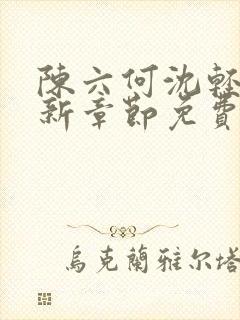 陳六何沈輕
新章節免費
烏克蘭雅尔塔